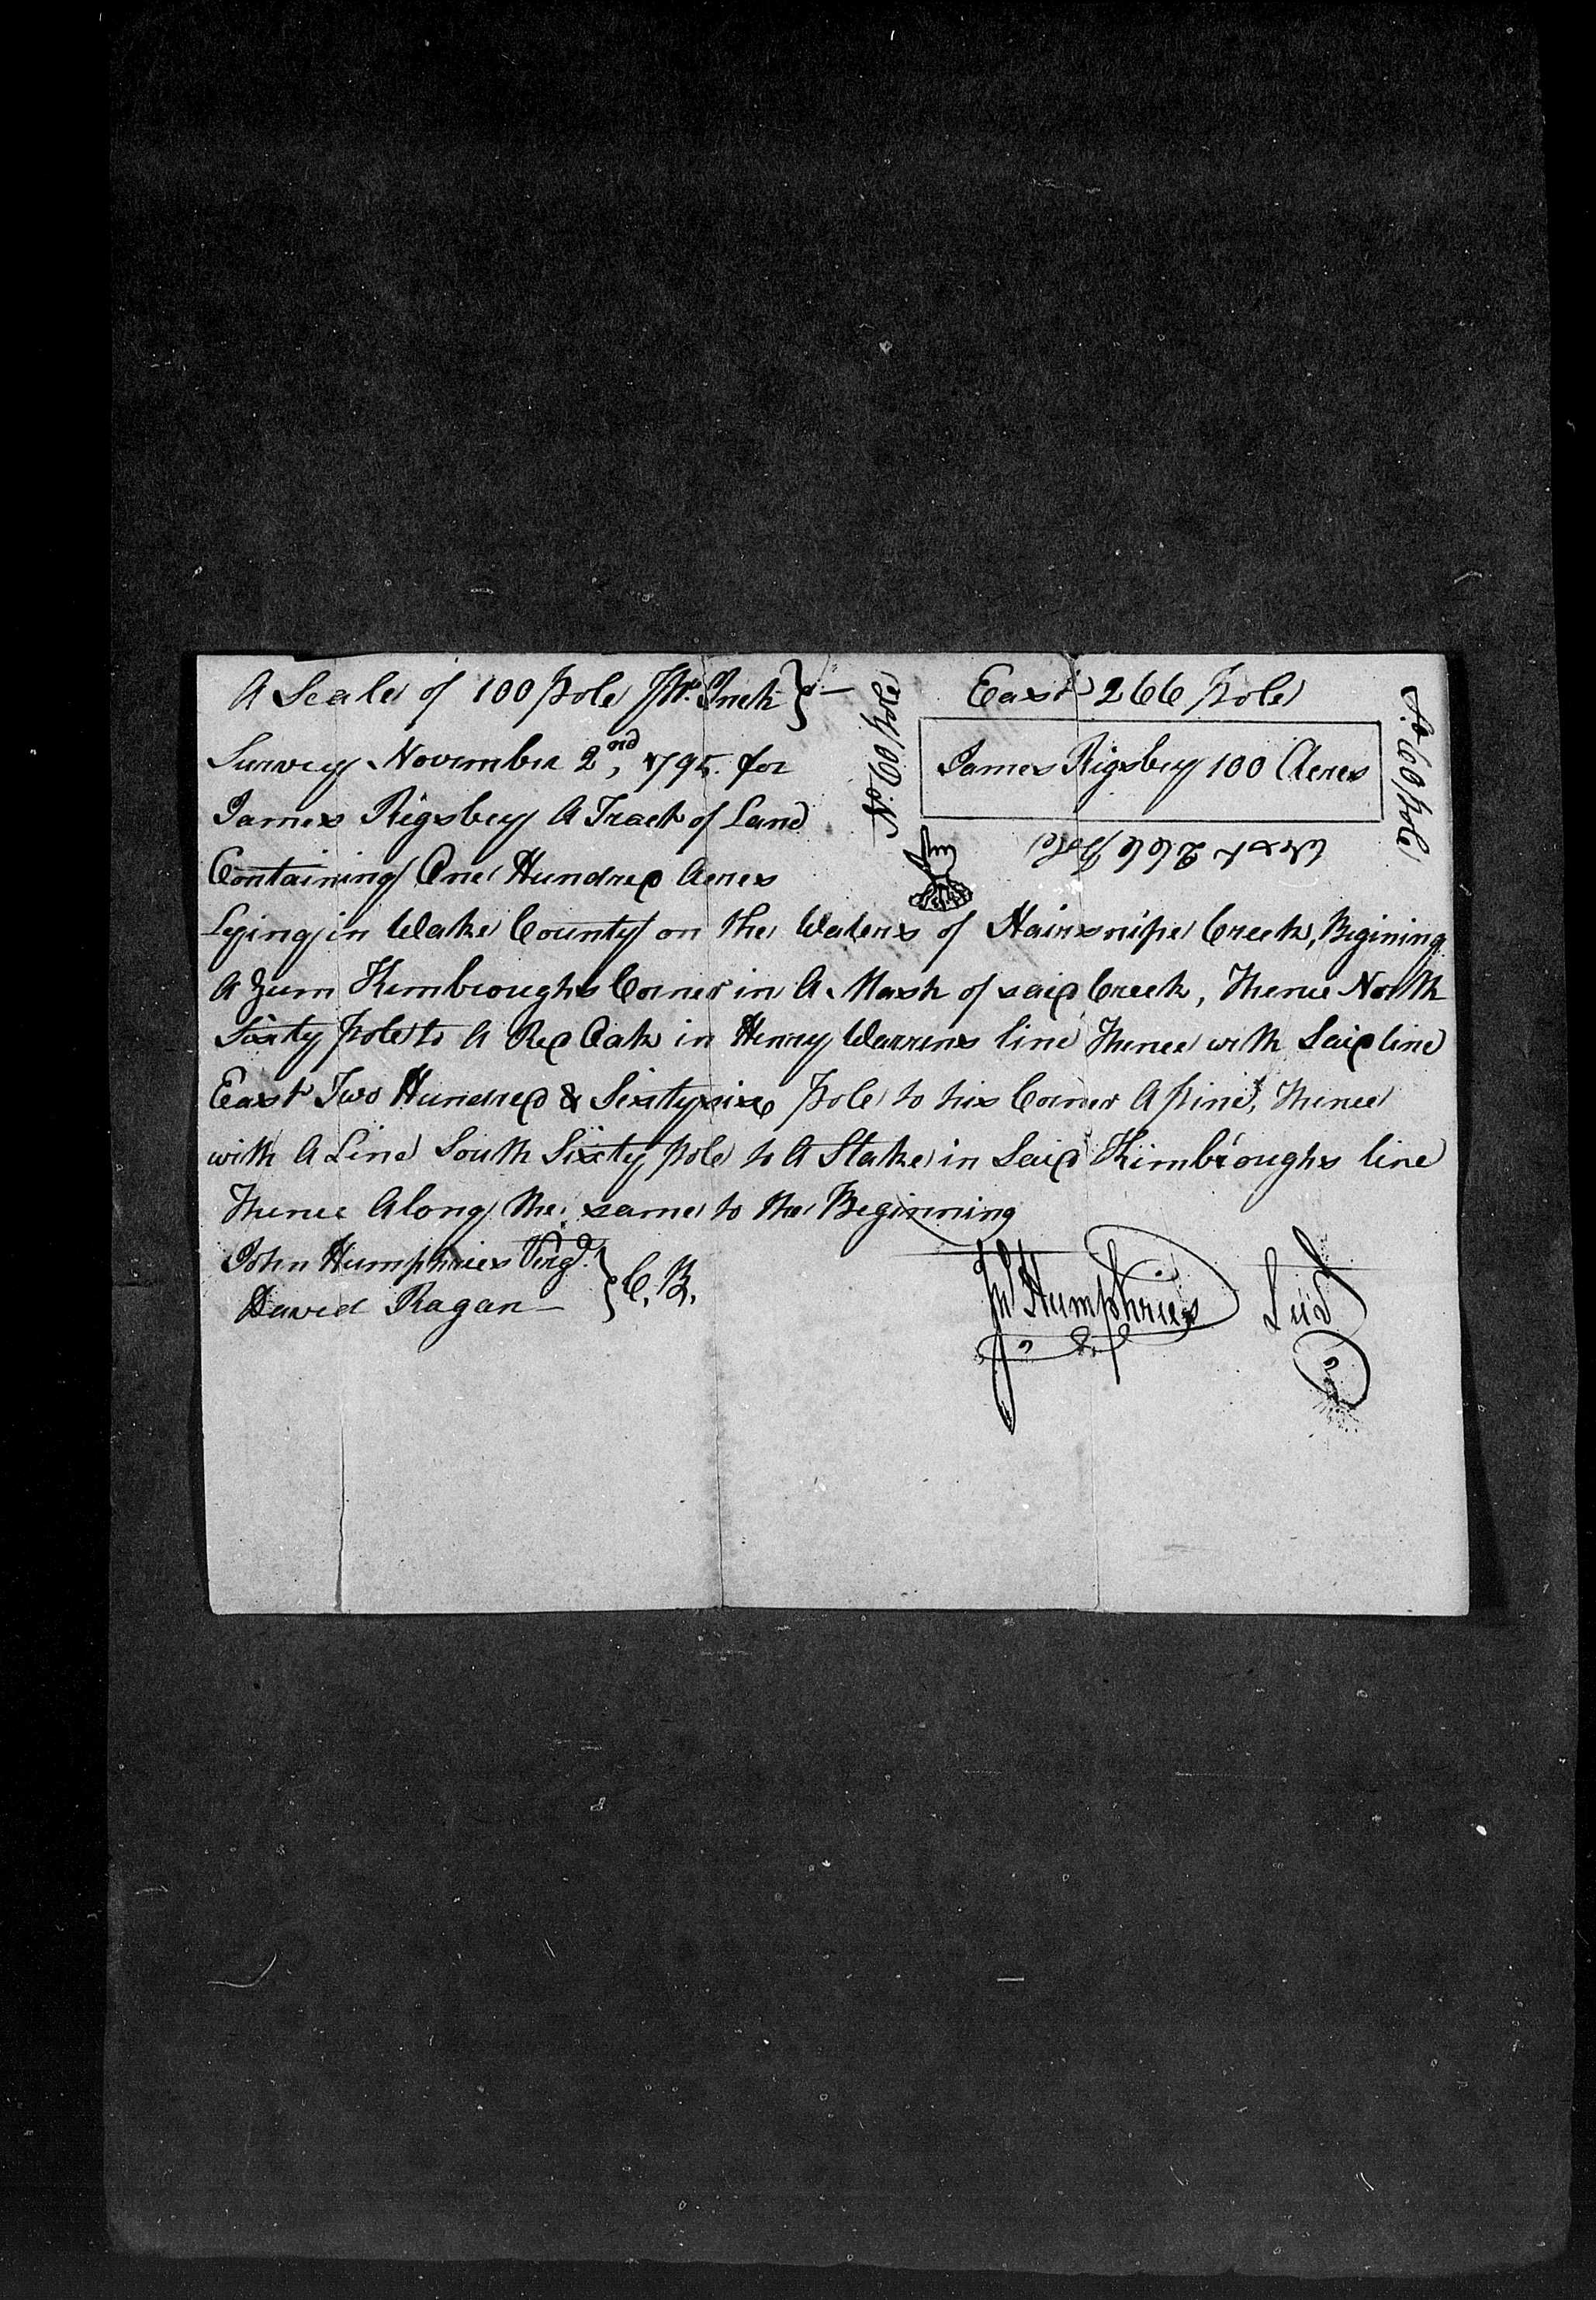 A Scale of 100 pole Pr. Inch
Survey November 2nd, 1795. for
James Rigsbey A Tract of Land
Containing One Hundred Acres
East 266 pole
No. 60 pole
James Rigsbey 100 Acres
So. 60 pole
West 266 Pole
Lying in Wake County on the Waters of Hairsnipe Creek, Begining
A Gum Kimbroughs Corner in A Mash of said Creek, Thence North
Sixty pole to A Red Oak in Henry Warrens line Thence with Said line
East Two Hundred & Sixty six pole to his Corner A pine, Thence
with A Line South Sixty pole to A Stake in Said Kimbroughs line
Thence Along the same to the Beginning
John Humphries
David Ragan
C. B.
Jn Humphries